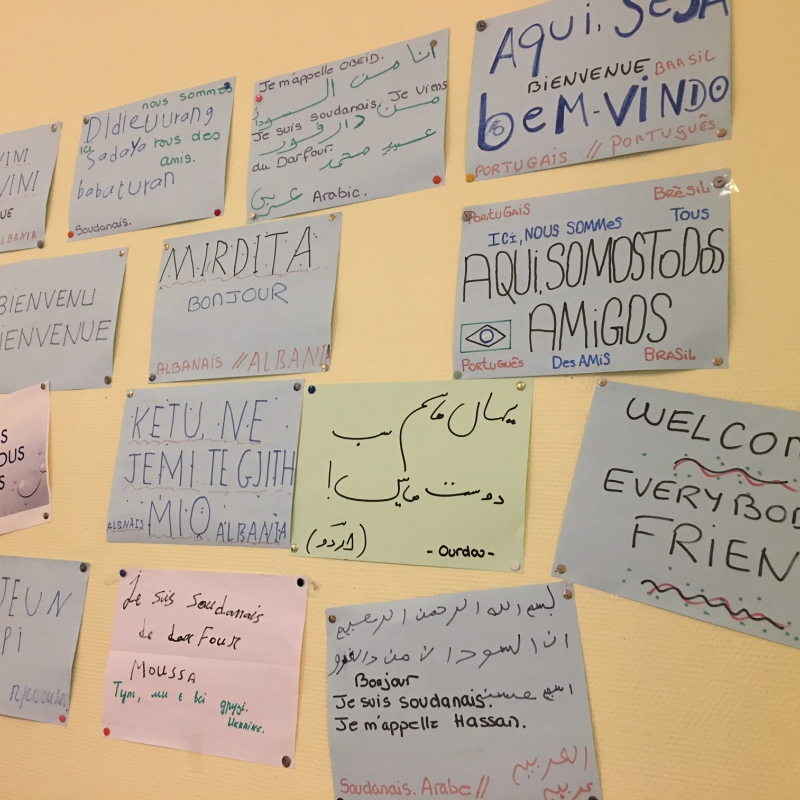 VINI
VINI
ALBANIA
nous sommes
Didieuurang
ici
Sadaya tous des
amis.
babaturan
Soudanais.
Je m'appelle OBEID.
انا من السودان
Je suis soudanais. Je viens
من دارفور
du Darfour.
عبيد محمد
عربي Arabic.
AQUI, SEJA
BIENVENUE BRASIL
BEM-VINDO
PORTUGAIS // PORTUGUÊS
BIENVENU
BIENVENUE
MIRDITA
BONJOUR
ALBANAIS // ALBANIA
PORTUGAIS
BRÈSIL
ICI, NOUS SOMMES TOUS
AQUI, SOMOS TODOS
AMIGOS
PORTUGUÊS
Des AMIS
BRASIL
KETU, NE
JEMI TE GJITH
MIQ
ALBNAIS
ALBANIA
یہاں ہم سب
دوست ہیں!
(اردو)
- Ourdou -
WELCOM
EVERYBOD
FRIEN
JEUN
Je sis Soudanais
de dar Four
MOUSSA
Тут, ми є всі друзі.
Ukraine.
بسم الله الرحمن الرحيم
Bonjour
Je suis soudanais.
Je m'appelle Hassan.
Soudanais. Arabe //
العربية
عربية